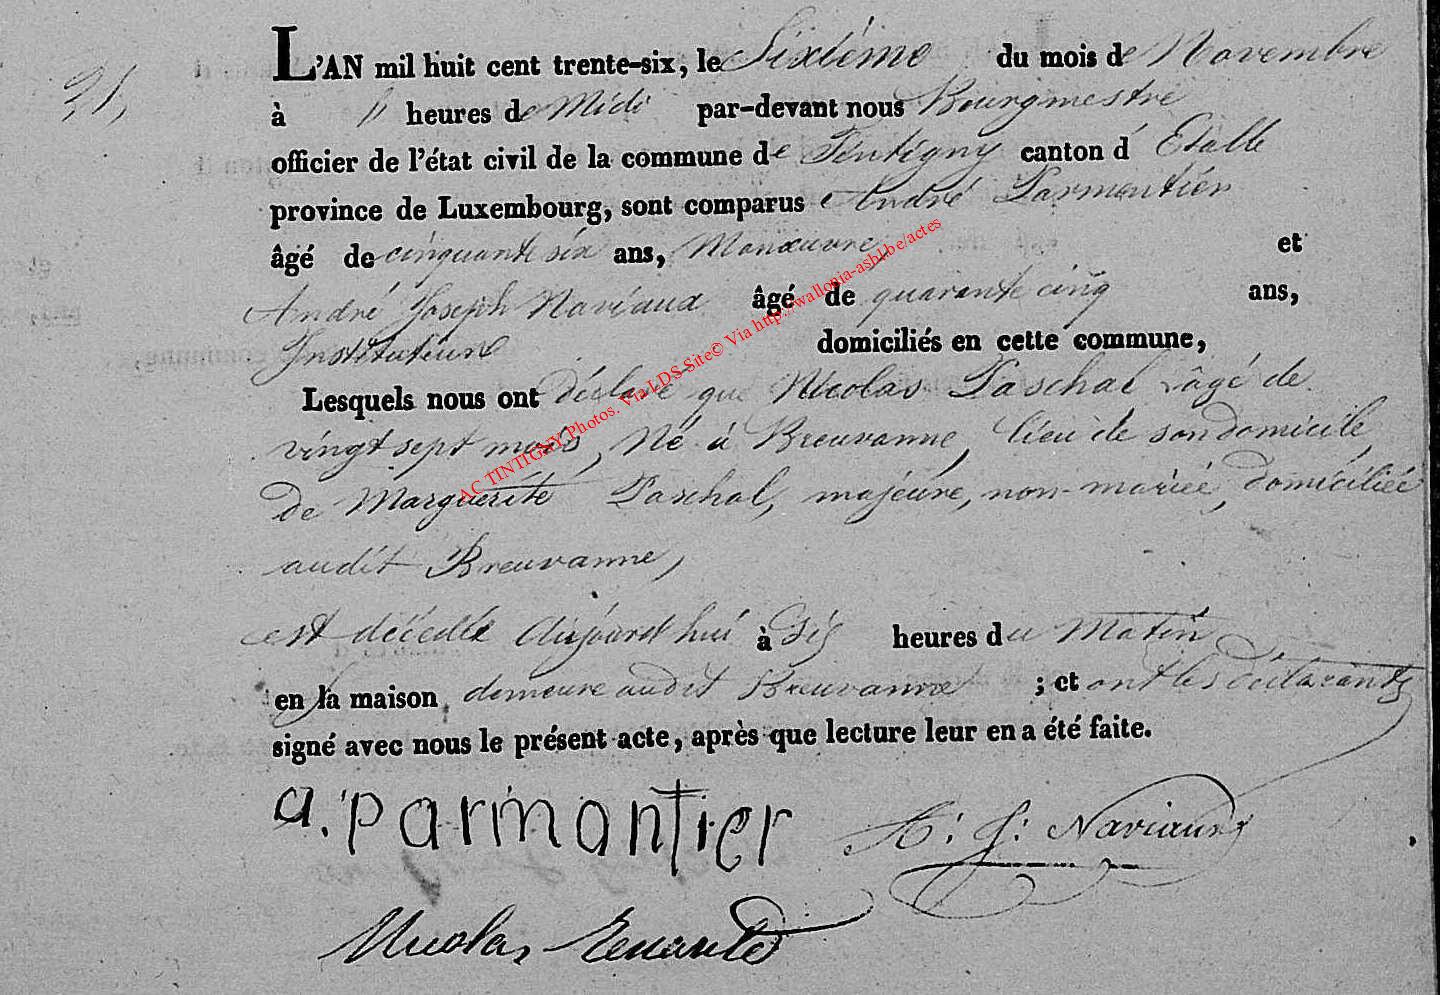 21,
L'AN mil huit cent trente-six, le Sixiéme du mois de Novembre
à heures de Midi par-devant nous Bourgmestre
officier de l'état civil de la commune de Tintigny canton d' Etalle
province de Luxembourg, sont comparus André Parmentier
âgé de cinquante six ans, Manœuvre, et
André Joseph Naviaux âgé de quarante cinq ans,
Instituteur domiciliés en cette commune,
Lesquels nous ont déclaré que Nicolas Paschal âgé de
vingt sept mois, Né à Breuvanne, lieu de son domicile,
de Marguerite Paschal, majeure, non-mariée, domiciliée
audit Breuvanne,
est décédé aujourd'hui à six heures du Matin
en la maison demeure audit Breuvanne ; et ont les déclarants
signé avec nous le présent acte, après que lecture leur en a été faite.
a. parmantier A: J: Naviaux
Nicolas
AC TINTIGNY Photos. Via LDS Site© Via http://wallonia-asbl.be/actes